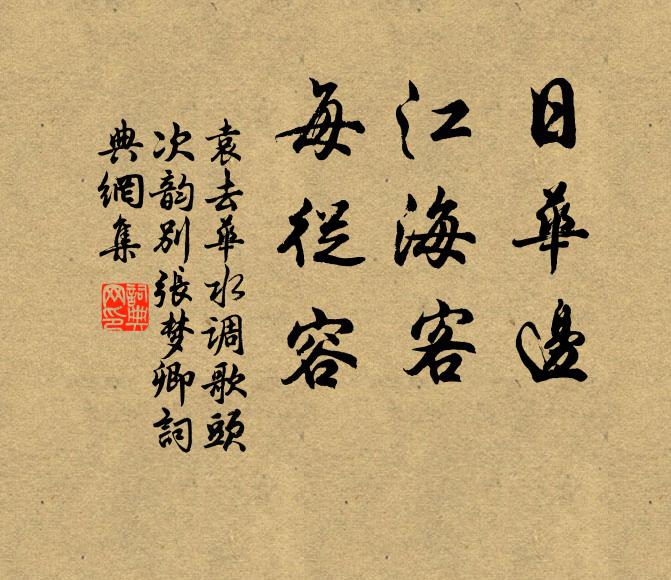 日華邊
江海客
每從容
袁去華水调歌頭
次韵别張梦卿詞
典網集
詞典
网印